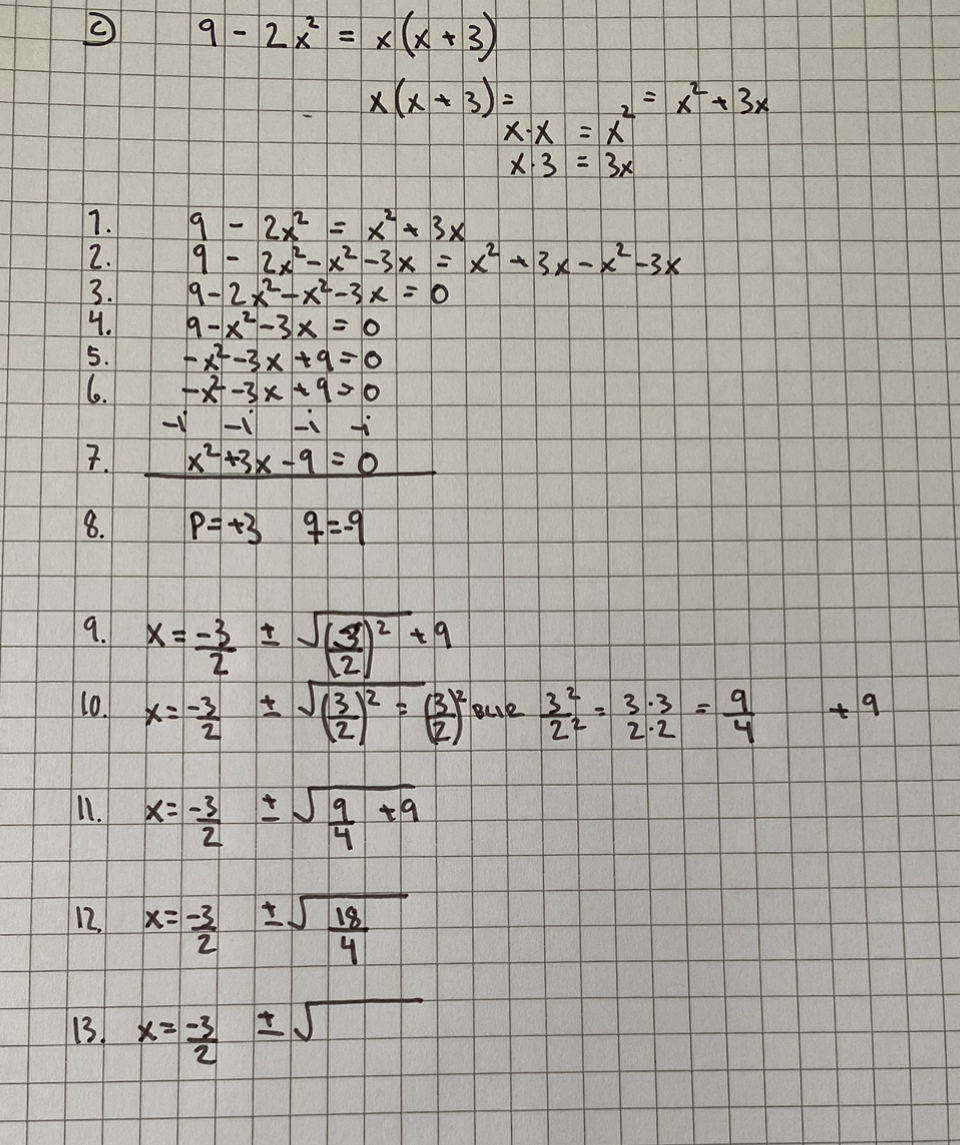 c) 9 - 2x² = x(x + 3)
x(x + 3) = = x² + 3x
x·x = x²
x·3 = 3x
1. 9 - 2x² = x² + 3x
2. 9 - 2x² - x² - 3x = x² + 3x - x² - 3x
3. 9 - 2x² - x² - 3x = 0
4. 9 - x² - 3x = 0
5. -x² - 3x + 9 = 0
6. -x² - 3x + 9 = 0
-1 -1 -1 -1
7. x² + 3x - 9 = 0
8. P = +3 q = -9
9. x = -3/2 ± √(3/2)² + 9
10. x = -3/2 ± √(3/2)² = (3/2)² BLIR 3²/2² = 3·3/2·2 = 9/4 + 9
11. x = -3/2 ± √9/4 + 9
12. x = -3/2 ± √18/4
13. x = -3/2 ± √